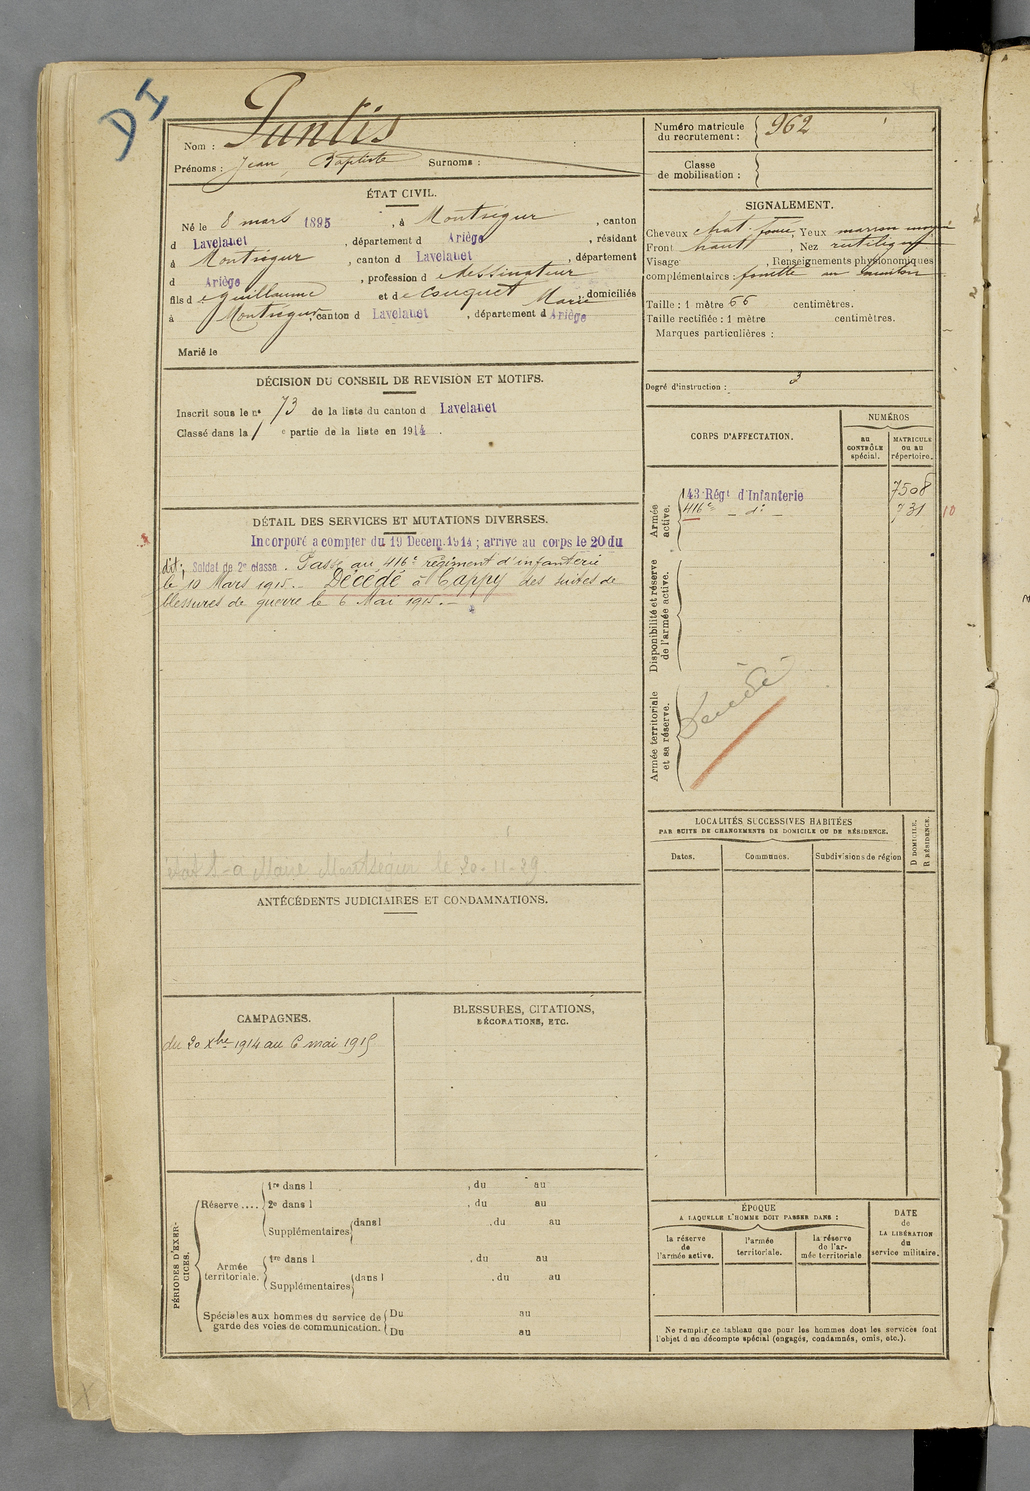 DI
Nom : Puntis
Prénoms : Jean Baptiste Surnoms :
Numéro matricule du recrutement : 962
Classe de mobilisation :
ÉTAT CIVIL.
Né le 8 mars 1895, à Montségur, canton
d Lavelanet, département d Ariège, résidant
à Montségur, canton d Lavelanet, département
d Ariège, profession de dessinateur
fils de Guillaume et de Couquet Marie, domiciliés
à Montségur, canton d Lavelanet, département d Ariège
Marié le
SIGNALEMENT.
Cheveux chat. foncé, Yeux marron moyen
Front haut, Nez rectiligne
Visage , Renseignements physionomiques
complémentaires : au menton
Taille : 1 mètre 66 centimètres.
Taille rectifiée : 1 mètre centimètres.
Marques particulières :
Degré d'instruction : 3
DÉCISION DU CONSEIL DE REVISION ET MOTIFS.
Inscrit sous le n° 73 de la liste du canton d Lavelanet
Classé dans la 1 e partie de la liste en 1914.
DÉTAIL DES SERVICES ET MUTATIONS DIVERSES.
Incorporé a compter du 19 Décem. 1914 ; arrivé au corps le 20 du
dit, Soldat de 2e classe. Passé au 416e régiment d'infanterie
le 10 Mars 1915. Décédé à Cappy des suites de
blessures de guerre le 6 Mai 1915.
Maire Montségur le 20-11-29
CORPS D'AFFECTATION.
NUMÉROS
au CONTRÔLE spécial.
MATRICULE OU AU répertoire.
Armée active.
143 Régt d'Infanterie 7508
416e - d° - 731 10
Disponibilité et réserve de l'armée active.
Armée territoriale et sa réserve.
Décédé
LOCALITÉS SUCCESSIVES HABITÉES
PAR SUITE DE CHANGEMENTS DE DOMICILE OU DE RÉSIDENCE.
Dates. Communes. Subdivisions de région
D DOMICILE.
R RÉSIDENCE.
ANTÉCÉDENTS JUDICIAIRES ET CONDAMNATIONS.
CAMPAGNES.
du 20 Xbre 1914 au 6 mai 1915
BLESSURES, CITATIONS,
DÉCORATIONS, ETC.
PÉRIODES D'EXERCICES.
Réserve ....
1re dans l , du au
2e dans l , du au
Supplémentaires dans l , du au
Armée territoriale.
1re dans l , du au
Supplémentaires dans l , du au
Spéciales aux hommes du service de garde des voies de communication.
Du au
Du au
ÉPOQUE
A LAQUELLE L'HOMME DOIT PASSER DANS :
la réserve de l'armée active.
l'armée territoriale.
la réserve de l'armée territoriale
DATE
de
LA LIBÉRATION
du
service militaire.
Ne remplir ce tableau que pour les hommes dont les services font
l'objet d'un décompte spécial (engagés, condamnés, omis, etc.).